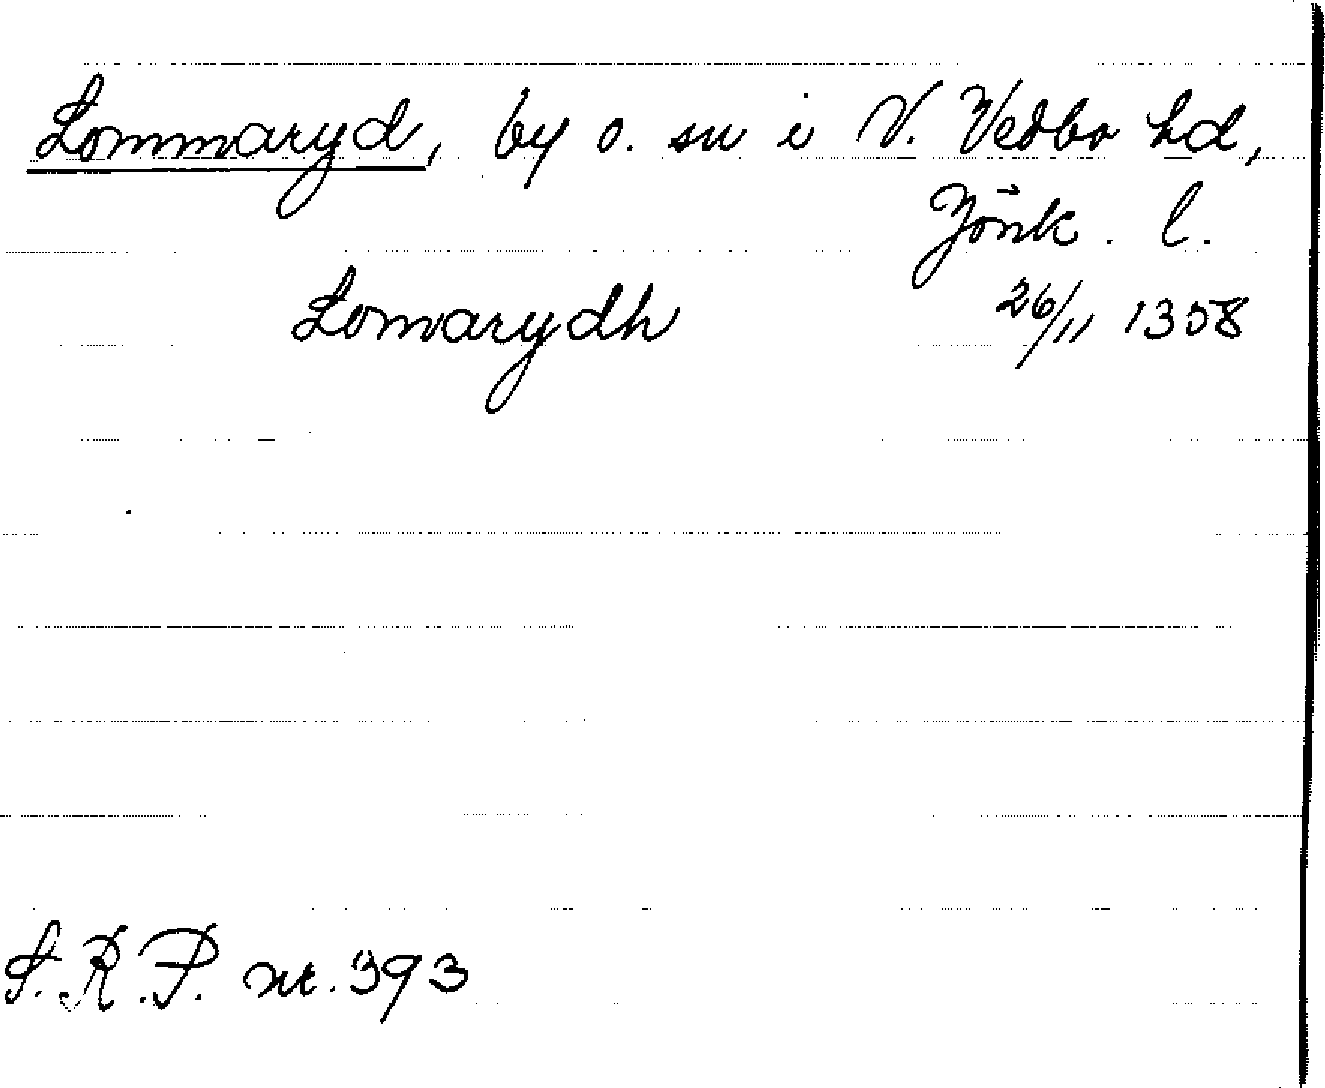 Lommaryd, by o. sn i N. Vedbo hd,
Jönk. l.
Lomarydh 26/11 1358
S.R.P. nr. 393